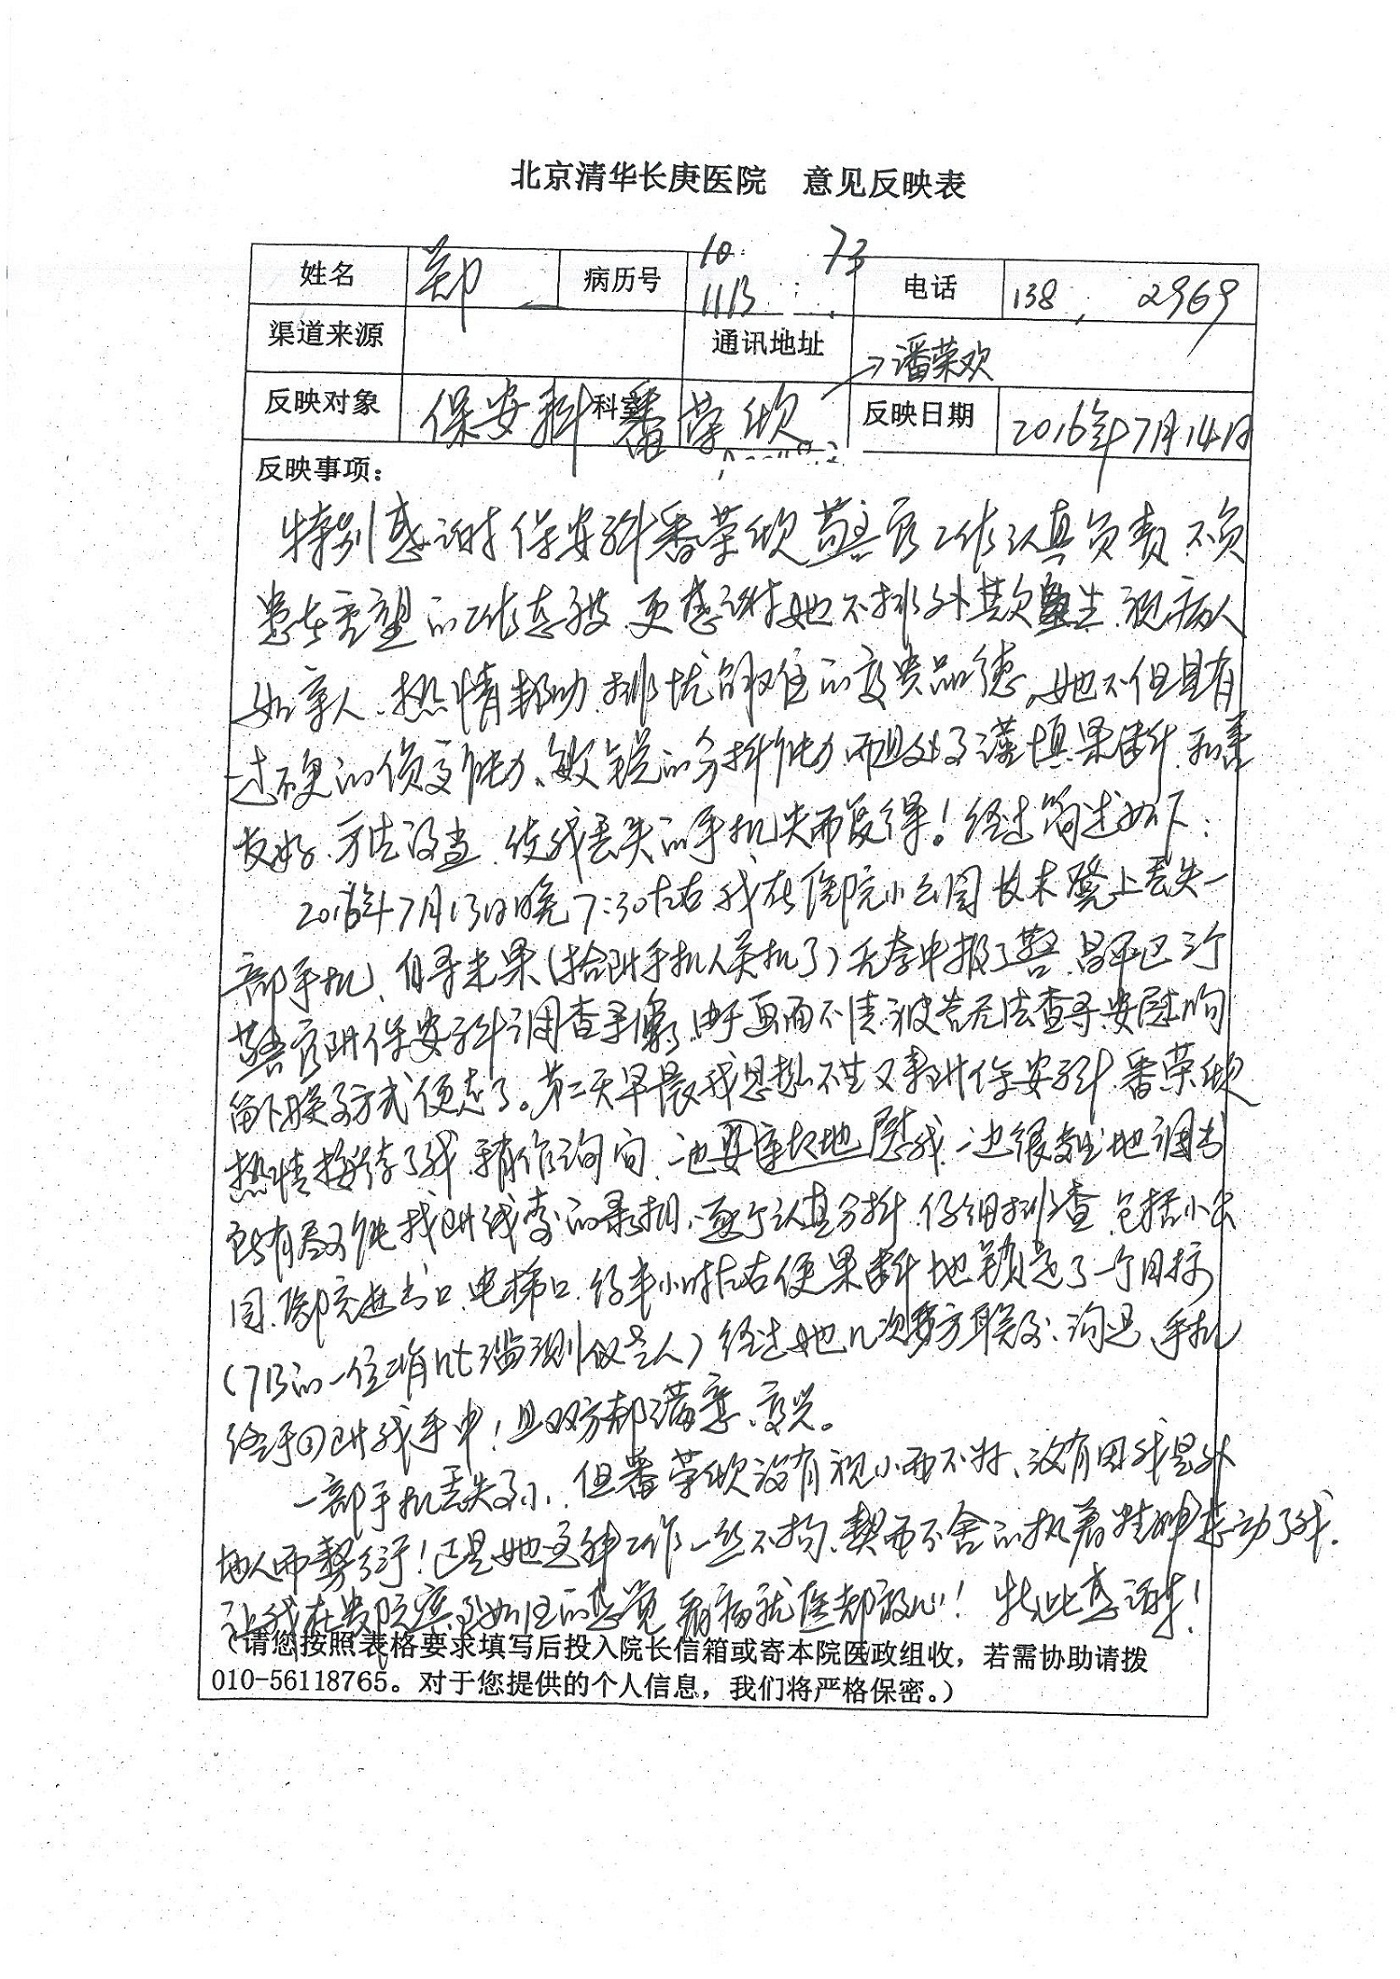 北京清华长庚医院 意见反映表
姓名 郑 病历号 10 73 11B 电话 138 2969
渠道来源 通讯地址 →潘荣欢
反映对象 保安科 科室 番荣欢 反映日期 2016年7月14日
反映事项：
特别感谢保安科番荣欢警官工作认真负责、不负
患者重望的工作态度、更感谢她不排外欺生、视病人
如亲人、热情帮助、排忧解难的高贵品德。她不但具有
过硬的侦变能力、敏锐的分析能力而且处事谨慎果断、和善
友好、方法得当、使我丢失的手机失而复得！经过简述如下：
2016年7月13日晚7:30左右我在医院小公园长木凳上丢失一
部手机、自寻未果（拾到手机人关机了）无奈中报了警、昌平巳三个
警官到保安科调查录像、由于画面不清被告无法查寻、安慰的
留下联系方式便走了。第二天早晨我思想不甘又来到保安科、番荣欢
热情接待了我、稍作询问、一边安慰我、一边很专业地调出
所有尽可能找到线索的录相、逐个认真分析、仔细排查、包括小公
园、医院进出口、电梯口、经半小时左右便果断地锁定了一个目标
（7B的一位 监测仪老人）经过她几次多方联系、沟通、手机
终于回到我手中！且双方都满意、高兴。
一部手机丢失事小、但番荣欢没有视小而不为、没有因我是外
地人而敷衍！正是她这种工作一丝不拘、契而不舍的执着精神感动了我、
让我在贵院宾至如归的感觉、看病就医都放心！特此感谢！
（请您按照表格要求填写后投入院长信箱或寄本院医政组收，若需协助请拨
010-56118765。对于您提供的个人信息，我们将严格保密。）